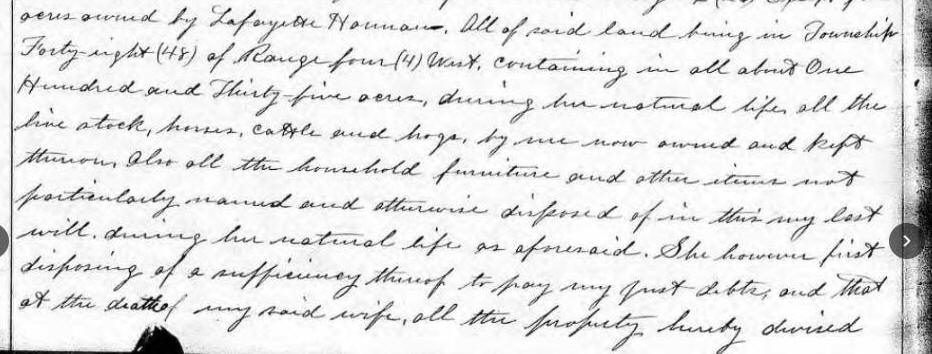 acres owned by Lafayette Hannan. All of said land being in Township
Forty-eight (48) of Range four (4) West, containing in all about One
Hundred and Thirty-five acres, during her natural life, all the
live stock, horses, cattle and hogs, by me now owned and kept
thereon, also all the household furniture and other items not
particularly named and otherwise disposed of in this my last
will, during her natural life as aforesaid. She however first
disposing of a sufficiency thereof to pay my just debts, and that
at the death of my said wife, all the property hereby devised